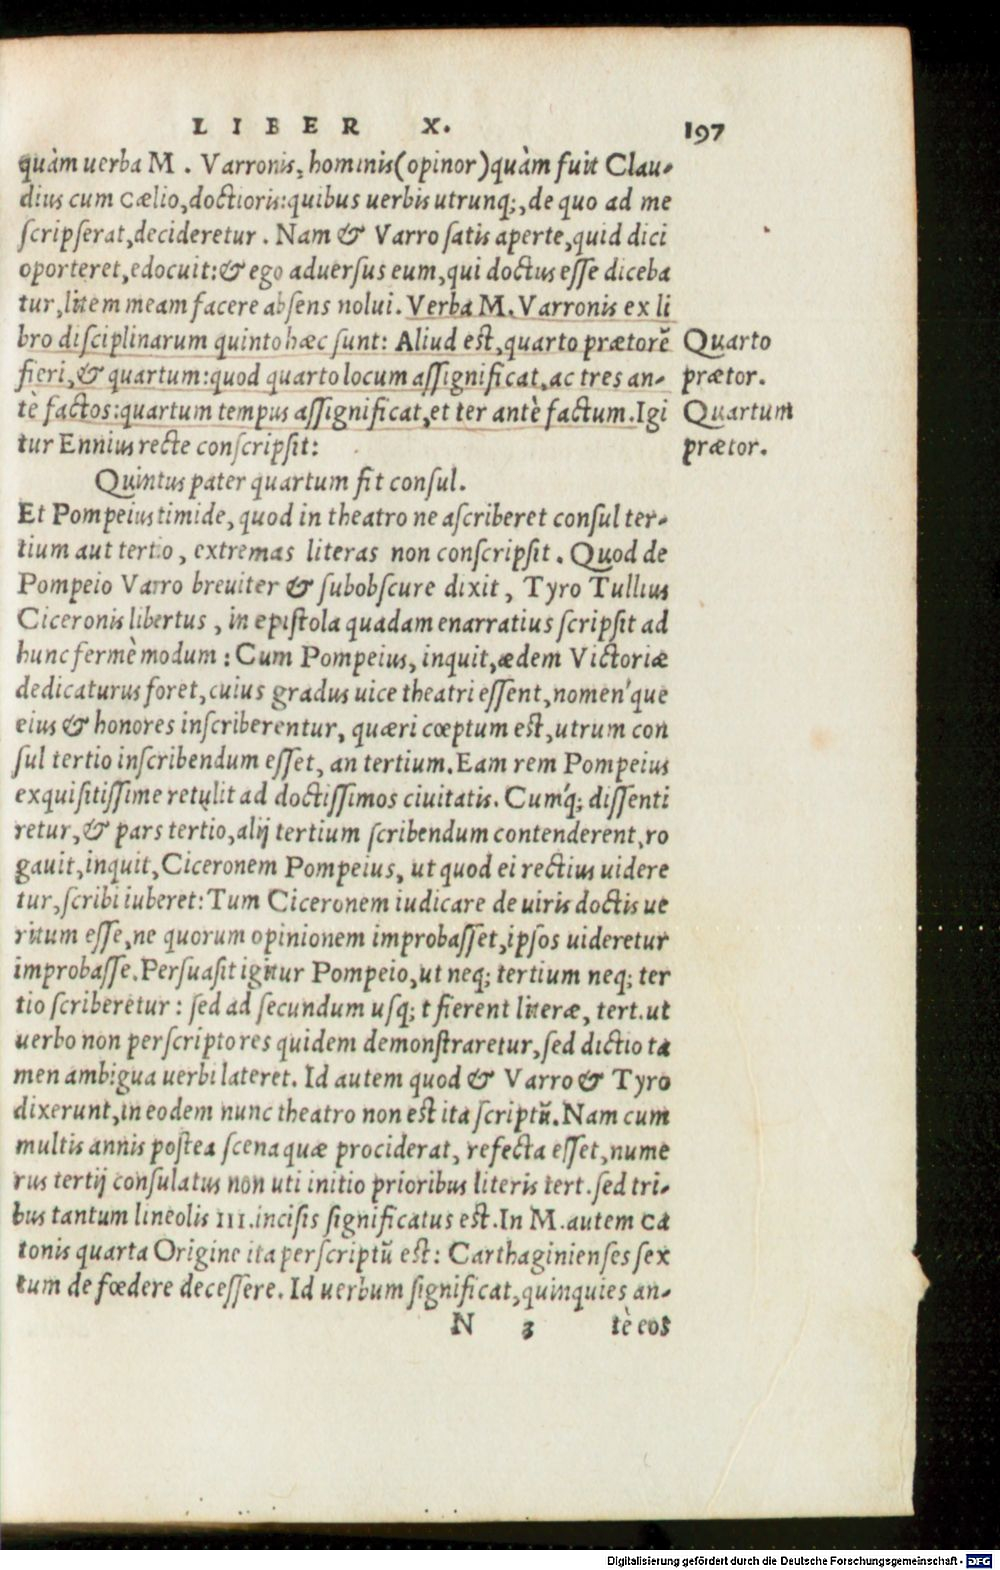 LIBER X. 197
quàm uerba M. Varronis, hominis (opinor) quàm fuit Clau-
dius cum Cælio, doctioris: quibus uerbis utrunq;, de quo ad me
scripserat, decideretur. Nam & Varro satis aperte, quid dici
oporteret, edocuit: & ego aduersus eum, qui doctus esse diceba
tur, litem meam facere absens nolui. Verba M. Varronis ex li
bro disciplinarum quinto hæc sunt: Aliud est, quarto prætorẽ
Quarto
fieri, & quartum: quod quarto locum assignificat, ac tres an-
prætor.
tè factos: quartum tempus assignificat, et ter antè factum. Igi
Quartum
tur Ennius recte conscripsit:
prætor.
Quintus pater quartum fit consul.
Et Pompeius timide, quod in theatro ne ascriberet consul ter-
tium aut tertio, extremas literas non conscripsit. Quod de
Pompeio Varro breuiter & subobscure dixit, Tyro Tullius
Ciceronis libertus, in epistola quadam enarratius scripsit ad
hunc fermè modum: Cum Pompeius, inquit, ædem Victoriæ
dedicaturus foret, cuius gradus uice theatri essent, nomen'que
eius & honores inscriberentur, quæri cœptum est, utrum con
sul tertio inscribendum esset, an tertium. Eam rem Pompeius
exquisitissime retulit ad doctissimos ciuitatis. Cum'q; dissenti
retur, & pars tertio, alij tertium scribendum contenderent, ro
gauit, inquit, Ciceronem Pompeius, ut quod ei rectius uidere
tur, scribi iuberet: Tum Ciceronem iudicare de uiris doctis ue
ritum esse, ne quorum opinionem improbasset, ipsos uideretur
improbasse. Persuasit igitur Pompeio, ut neq; tertium neq; ter
tio scriberetur: sed ad secundum usq; t fierent literæ, tert. ut
uerbo non perscripto res quidem demonstraretur, sed dictio ta
men ambigua uerbi lateret. Id autem quod & Varro & Tyro
dixerunt, in eodem nunc theatro non est ita scriptũ. Nam cum
multis annis postea scena quæ prociderat, refecta esset, nume
rus tertij consulatus non uti initio prioribus literis tert. sed tri-
bus tantum lineolis III. incisis significatus est. In M. autem Ca
tonis quarta Origine ita perscriptũ est: Carthaginienses sex
tum de fœdere decessere. Id uerbum significat, quinquies an-
N 3 tè eos
Digitalisierung gefördert durch die Deutsche Forschungsgemeinschaft - DFG